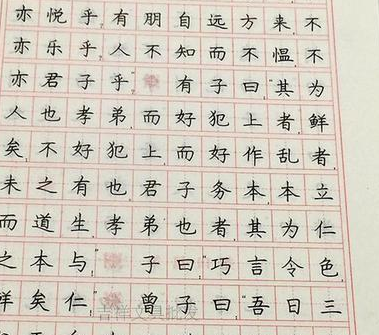 亦悦乎,有朋自远方来,不
亦乐乎,人不知而不愠,不
亦君子乎"有子曰"其为
人也孝弟,而好犯上者,鲜
矣,不好犯上,而好作乱者,
未之有也,君子务本,本立
而道生,孝弟也者,其为仁
之本与"子曰"巧言令色,
鲜矣仁"曾子曰"吾日三